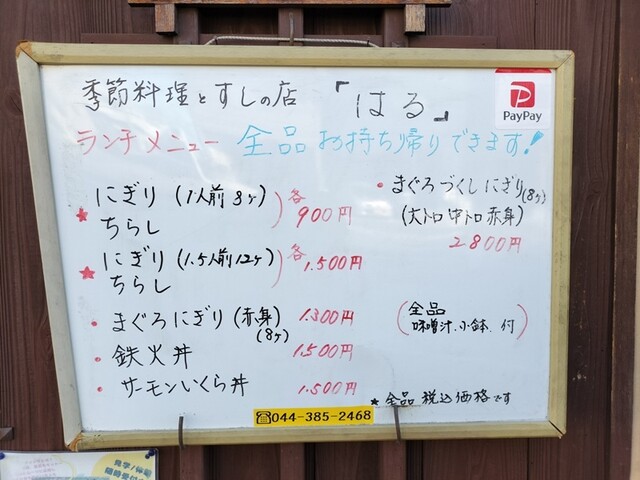 季節料理とすしの店 「はる」
PayPay
ランチメニュー 全品お持ち帰りできます!
★ にぎり (1人前 8ヶ)
ちらし
各 900円
★ にぎり (1.5人前 12ヶ)
ちらし
各 1.500円
・まぐろにぎり (赤身) (8ヶ) 1.300円
・鉄火丼 1.500円
・サーモンいくら丼 1.500円
・まぐろづくしにぎり (8ヶ)
(大トロ 中トロ 赤身)
2.800円
(全品
味噌汁、小鉢、付)
★全品 税込価格です
☎044-385-2468
見学/体験